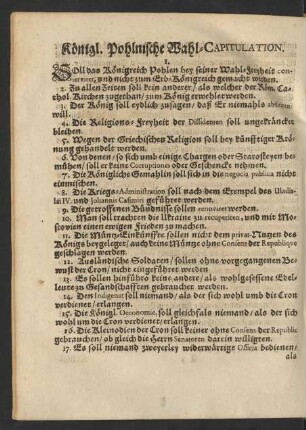 Königl. Pohlnische Wahl-CAPITULATION.
1.
SOll das Königreich Pohlen bey seiner Wahl-Freyheit con-
serviret, und nicht zum Erb-Königreich gemacht werden.
2. Zu allen Zeiten soll kein anderer/ als welcher der Röm. Ca-
thol. Kirchen zugethan/ zum König erwehlet werden.
3. Der König soll eydlich zusagen/ daß Er niemahls abdiciren
will.
4. Die Religions-Freyheit der Dissidenten soll ungekräncket
bleiben.
5. Wegen der Griechischen Religion soll bey künfftiger Krö-
nung gehandelt werden.
6. Von denen/ so sich umb einige Chargen oder Starosteyen be-
mühen/ soll er keine Corruptiones oder Geschencke nehmen.
7. Die Königliche Gemahlin soll sich in die negocia publica nicht
einmischen.
8. Die Kriegs-Administration soll nach dem Exempel des Uladis-
lai IV. und Johannis Casimiri geführet werden.
9. Die getroffenen Bündnisse sollen renoviret werden.
10. Man soll trachten die Ukraine zu recuperiren, und mit Mos-
covien einen ewigen Frieden zu machen.
11. Die Müntz-Einkünffte sollen nicht dem privat-Nutzen des
Königs beygeleget/ auch keine Müntze ohne Consens der Republique
geschlagen werden.
12. Ausländische Soldaten/ sollen ohne vorgegangenen Be-
wust der Cron/ nicht eingeführet werden
13. Es sollen hinführo keine andre/ als wohlgesessene Edel-
leute zu Gesandschafften gebrauchet werden.
14. Den Indigenat soll niemand/ als der sich wohl umb die Cron
verdienet/ erlangen.
15. Die Königl. Oeconomie, soll gleichfals niemand/ als der sich
wohl um die Cron verdienet/ erlangen.
16. Die Kleinodien der Cron soll keiner ohne Consens der Republiq
gebrauchen/ ob gleich die Herrn Senatoren darein willigten.
17. Es soll niemand zweyerley widerwärtige Officia bedienen/
als